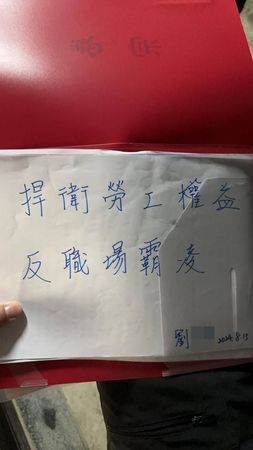 捍衛勞工權益
反職場霸凌
劉
2024.8.13